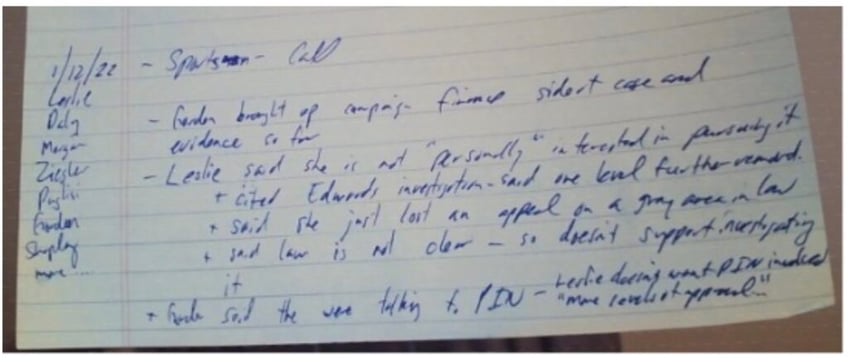 1/12/22 - Sportsman - Call
Leslie
Daly
Morgan
Ziegler
Puglisi
Gordon
Shapley
more ....
- Gordon brought up campaign finance side of case and
evidence so far
- Leslie said she is not "personally" interested in pursuing it
+ cited Edwards investigation - said one level further removed.
+ said she just lost an appeal on a gray area in law
+ said law is not clear - so doesn't support investigating
it
+ Gordon said the were talking to PIN - Leslie doesn't want PIN involved
"more levels of approval..."